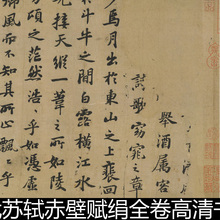 舉酒屬客
窈窕之章
少焉月出於東山之上裴回
於斗牛之間白露橫江水
光接天縱一葦之所如陵
頃之茫然浩浩乎如憑虛
御風而不知其所止飄飄乎
苏轼赤壁赋绢全卷高清